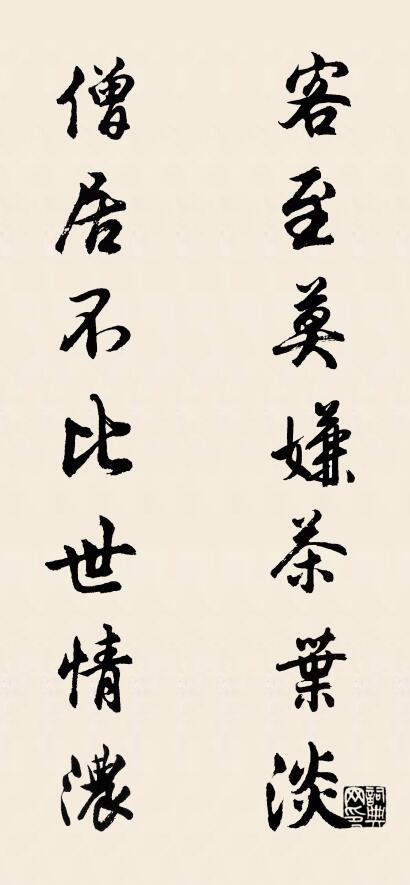 客至莫嫌茶葉淡
僧居不比世情濃
詞典網